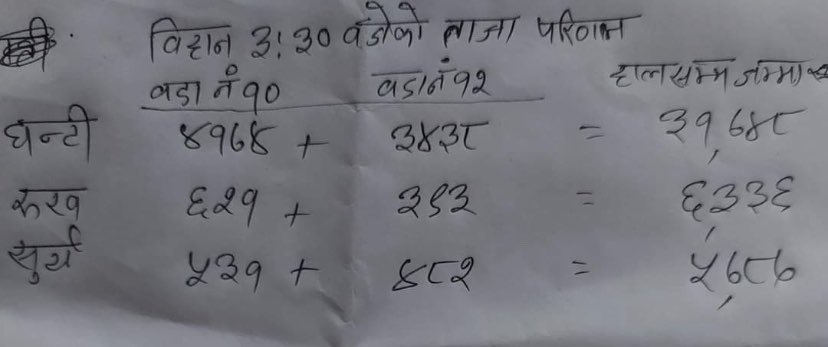 विहान ३:३० वजेको ताजा परिणाम
वडा नं १० वडा नं १२ हालसम्म जम्मा
घन्टी ४१६४ + ३४३८ = ३१,६४८
रुख ६२१ + ३९३ = ६,३३६
सुर्य ५३१ + ४८२ = ५,६८७